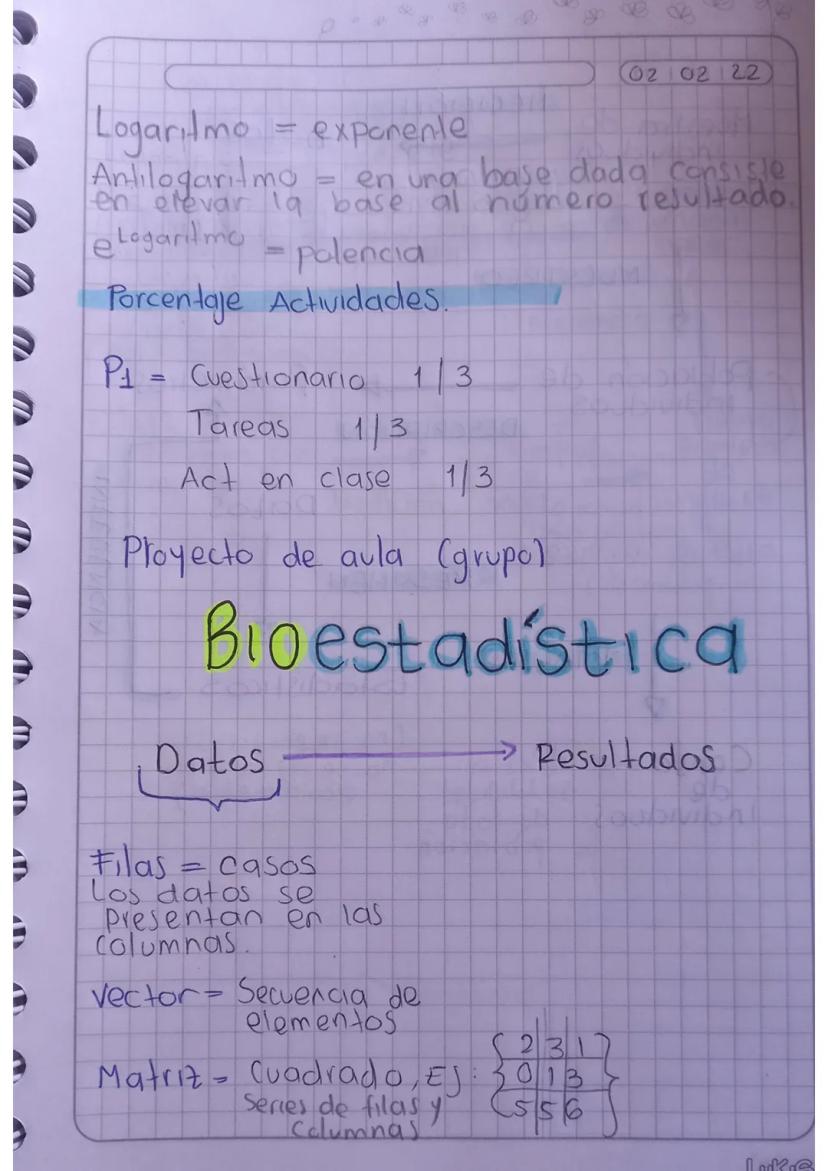 02 02 22
Logaritmo = exponente
Antilogaritmo = en una base dada consiste
en elevar la base al número resultado.
e^Logaritmo = potencia
Porcentaje Actividades.
P1 = Cuestionario 1/3
Tareas 1/3
Act en clase 1/3
Proyecto de aula (grupo)
Bioestadística
Datos → Resultados
Filas = casos
Los datos se
presentan en las
columnas.
Vector = Secuencia de
elementos
Matriz = Cuadrado, Ej:
series de filas y
columnas
{ 2 | 3 | 1 }
0 | 1 | 3
5 | 5 | 6